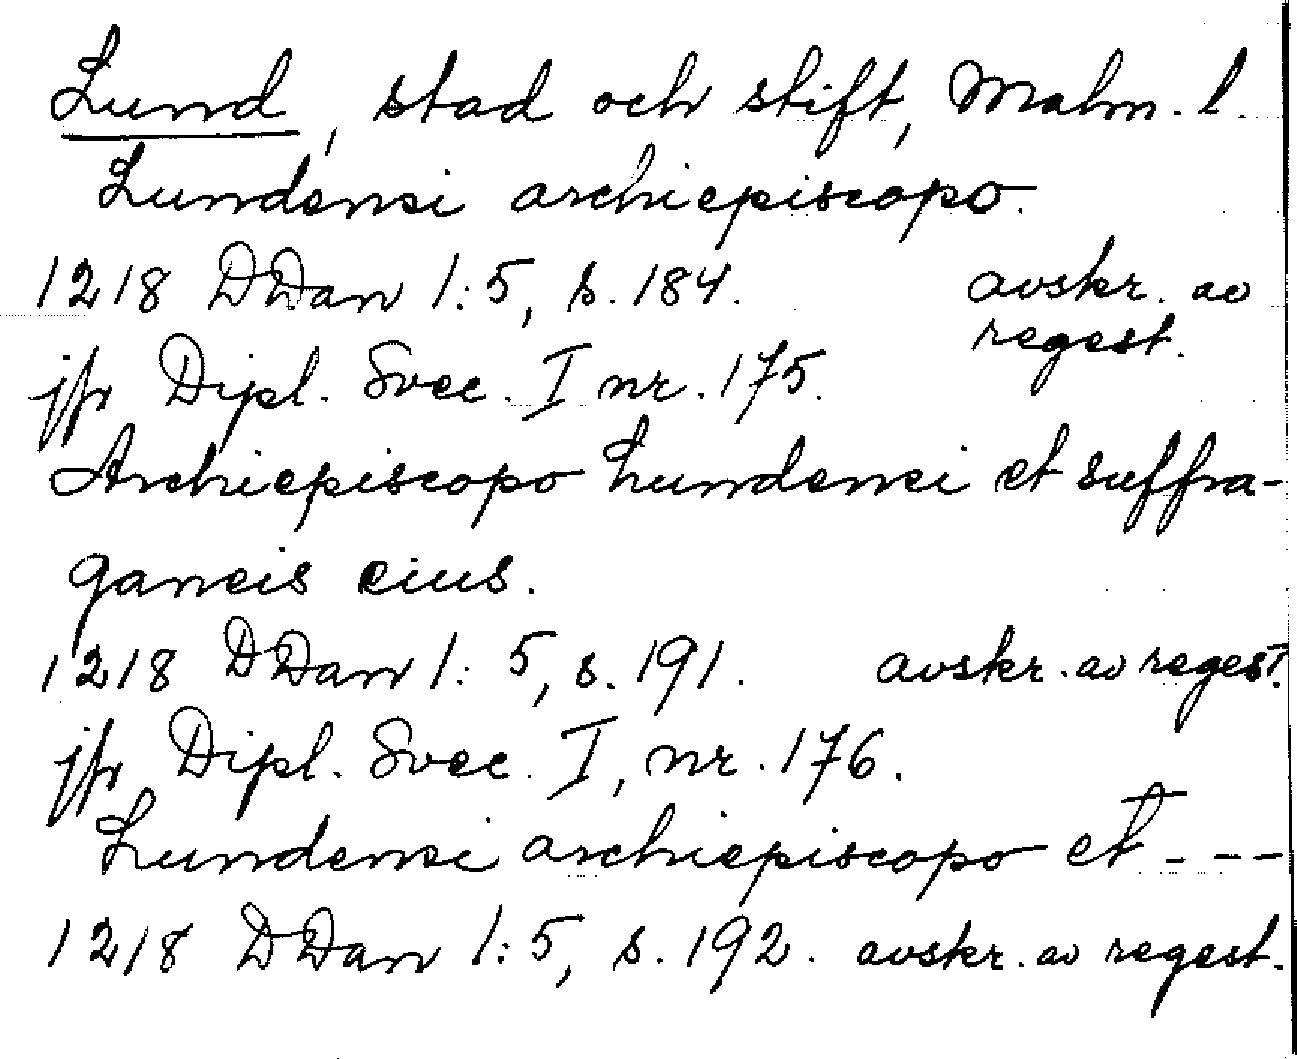 Lund, stad och stift, Malm. l.
Lundensi archiepiscopo.
1218 DDan 1:5, s. 184. avskr. av
regest.
jfr Dipl. Svec. I nr. 175.
Archiepiscopo Lundensi et suffra-
ganeis eius.
1218 DDan 1:5, s. 191. avskr. av regest.
jfr Dipl. Svec. I, nr. 176.
Lundensi archiepiscopo et - - -
1218 DDan 1:5, s. 192. avskr. av regest.